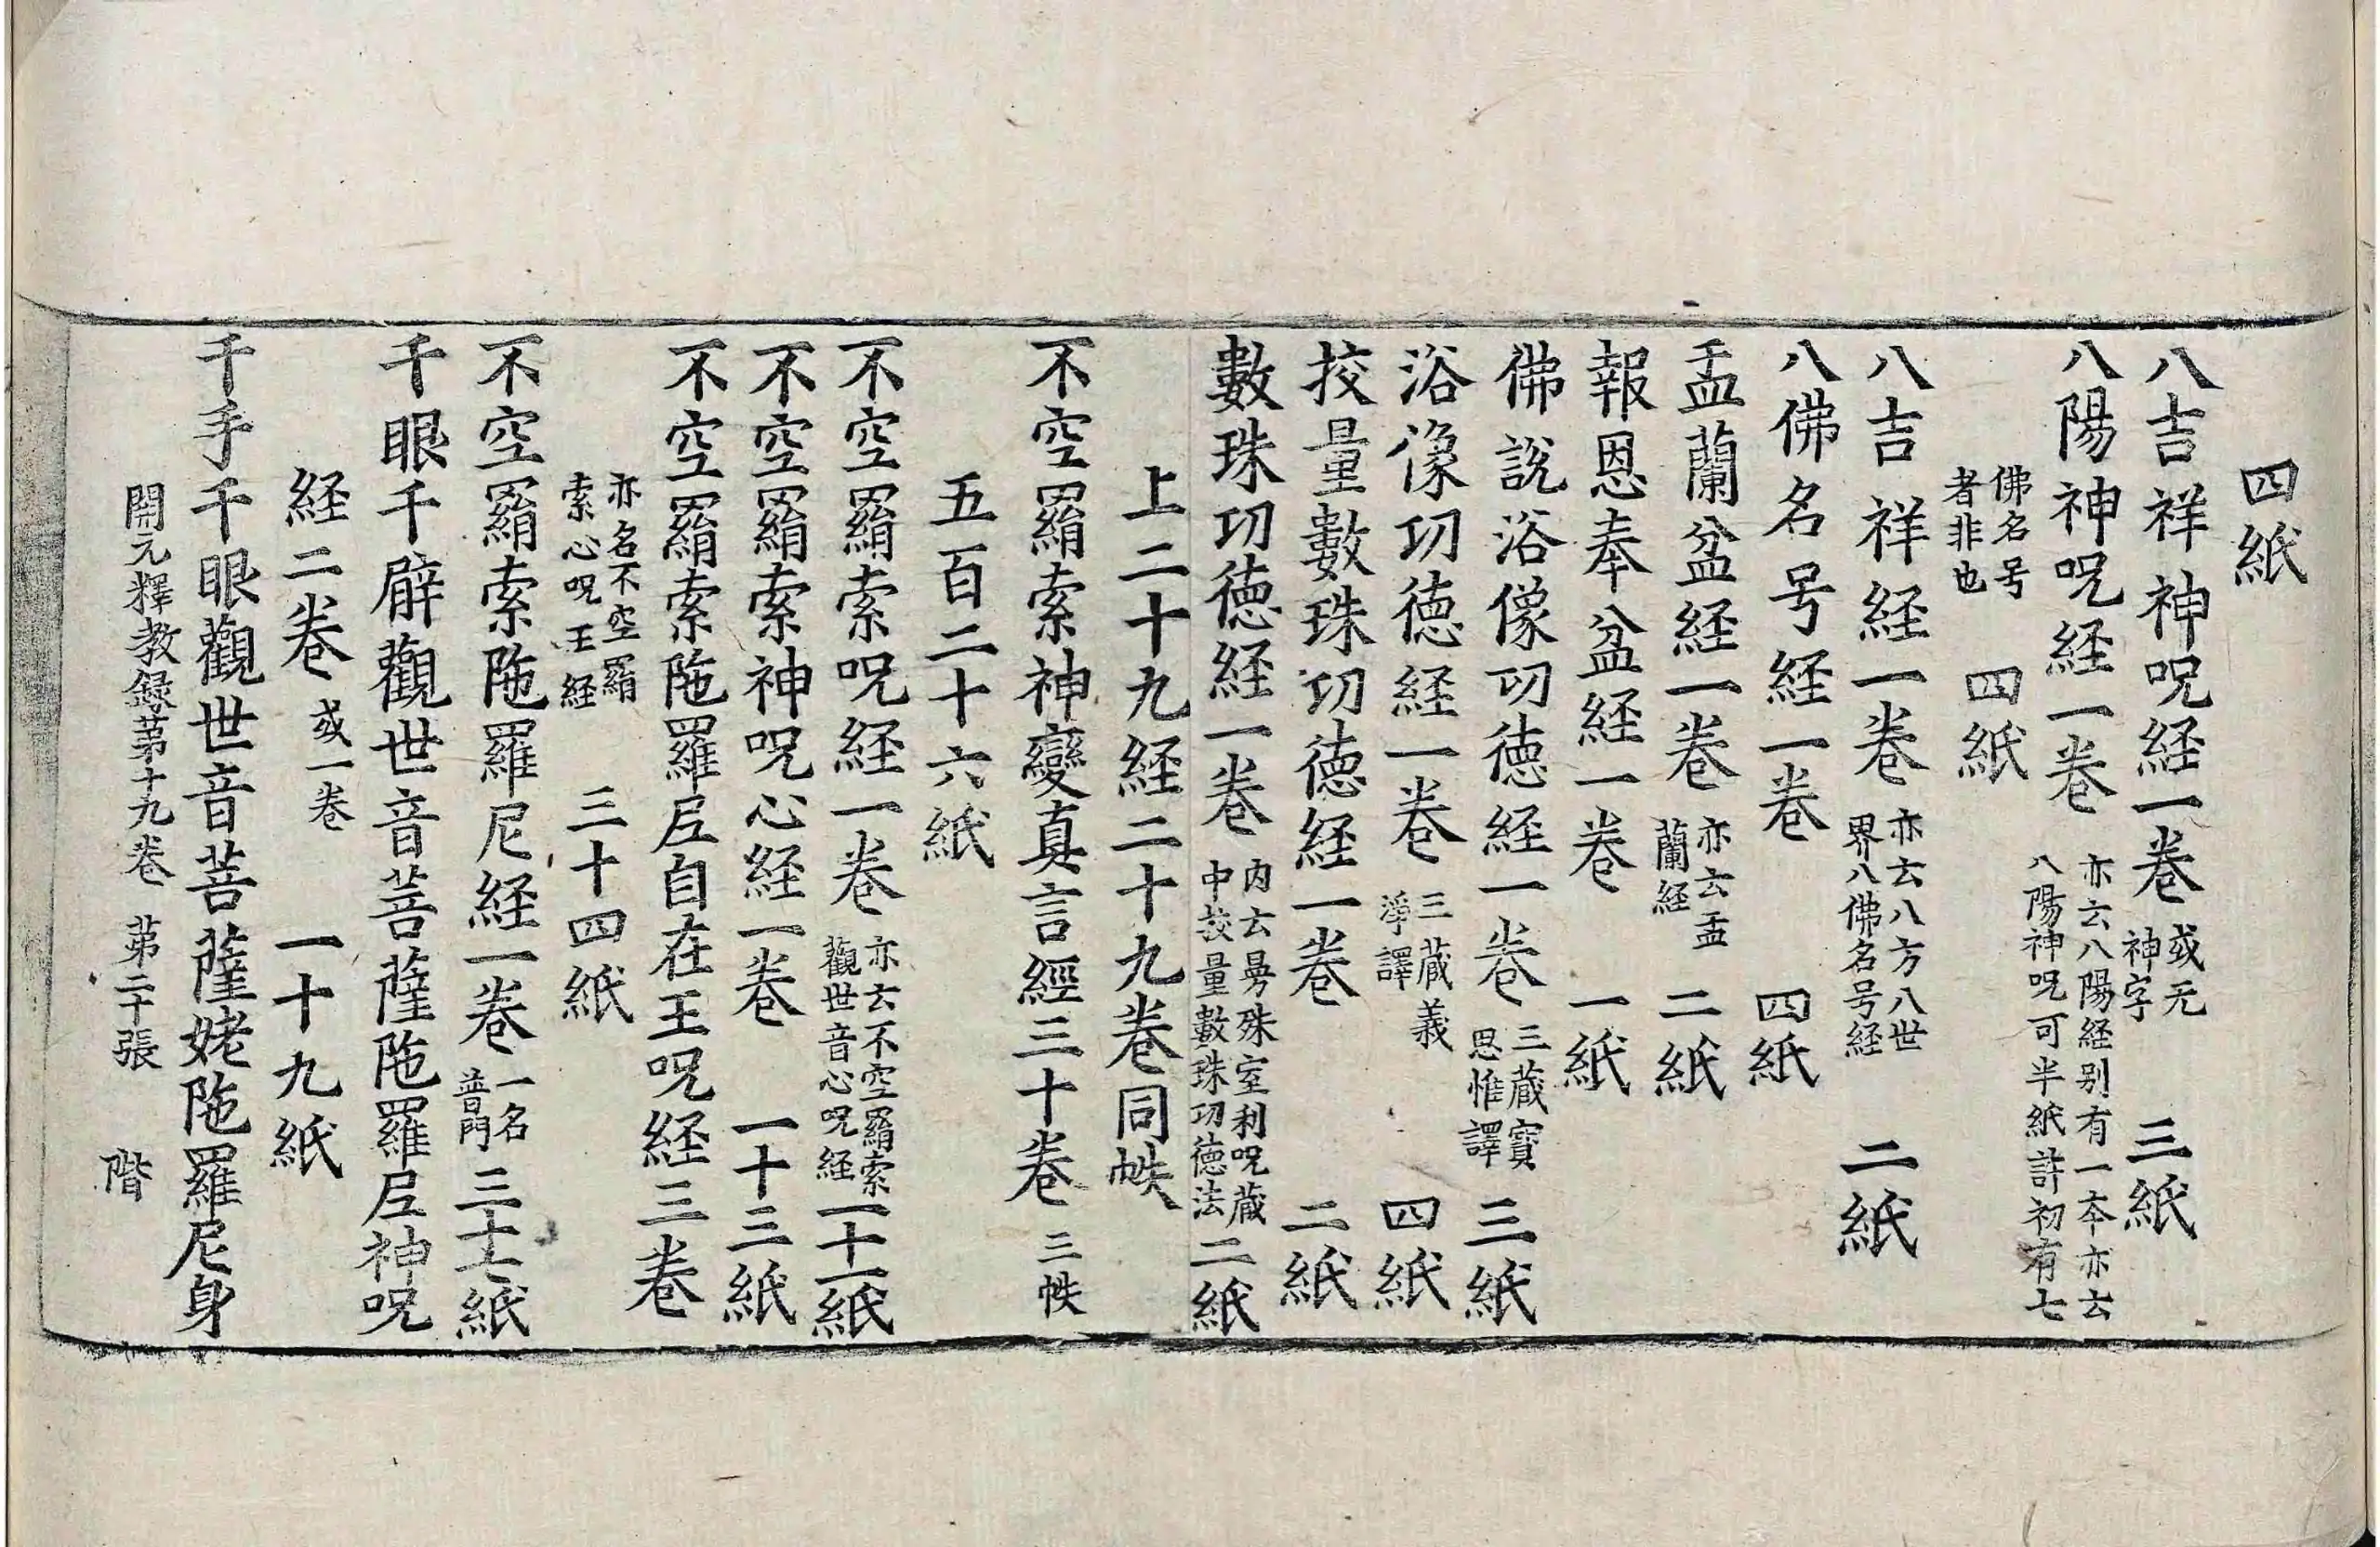 四紙
八吉祥神呪経一卷 或无神字 三紙
八陽神呪経一卷 亦云八陽経别有一夲亦云八陽神呪可半紙許初有七
佛名号者非也 四紙
八吉祥経一卷 亦云八方八世界八佛名号経 二紙
八佛名号経一卷 四紙
盂蘭盆経一卷 亦云盂蘭経 二紙
報恩奉盆経一卷 一紙
佛說浴像功徳経一卷 三蔵寳思惟譯 三紙
浴像功徳経一卷 三蔵義淨譯 四紙
挍量數珠功徳経一卷 二紙
數珠功徳経一卷 内云曼殊室利呪蔵中挍量數珠功徳法 二紙
上二十九経二十九卷同帙
不空羂索神變真言經三十卷 三帙
五百二十六紙
不空羂索呪経一卷 亦云不空羂索觀世音心呪経 一十一紙
不空羂索神呪心経一卷 一十三紙
不空羂索陁羅尼自在王呪経三卷
亦名不空羂索心呪王経 三十四紙
不空羂索陁羅尼経一卷 一名普門 三十七紙
千眼千臂觀世音菩薩陁羅尼神呪
経二卷 或一卷 一十九紙
千手千眼觀世音菩薩姥陁羅尼身
開元釋教録苐十九卷 苐二十張 階